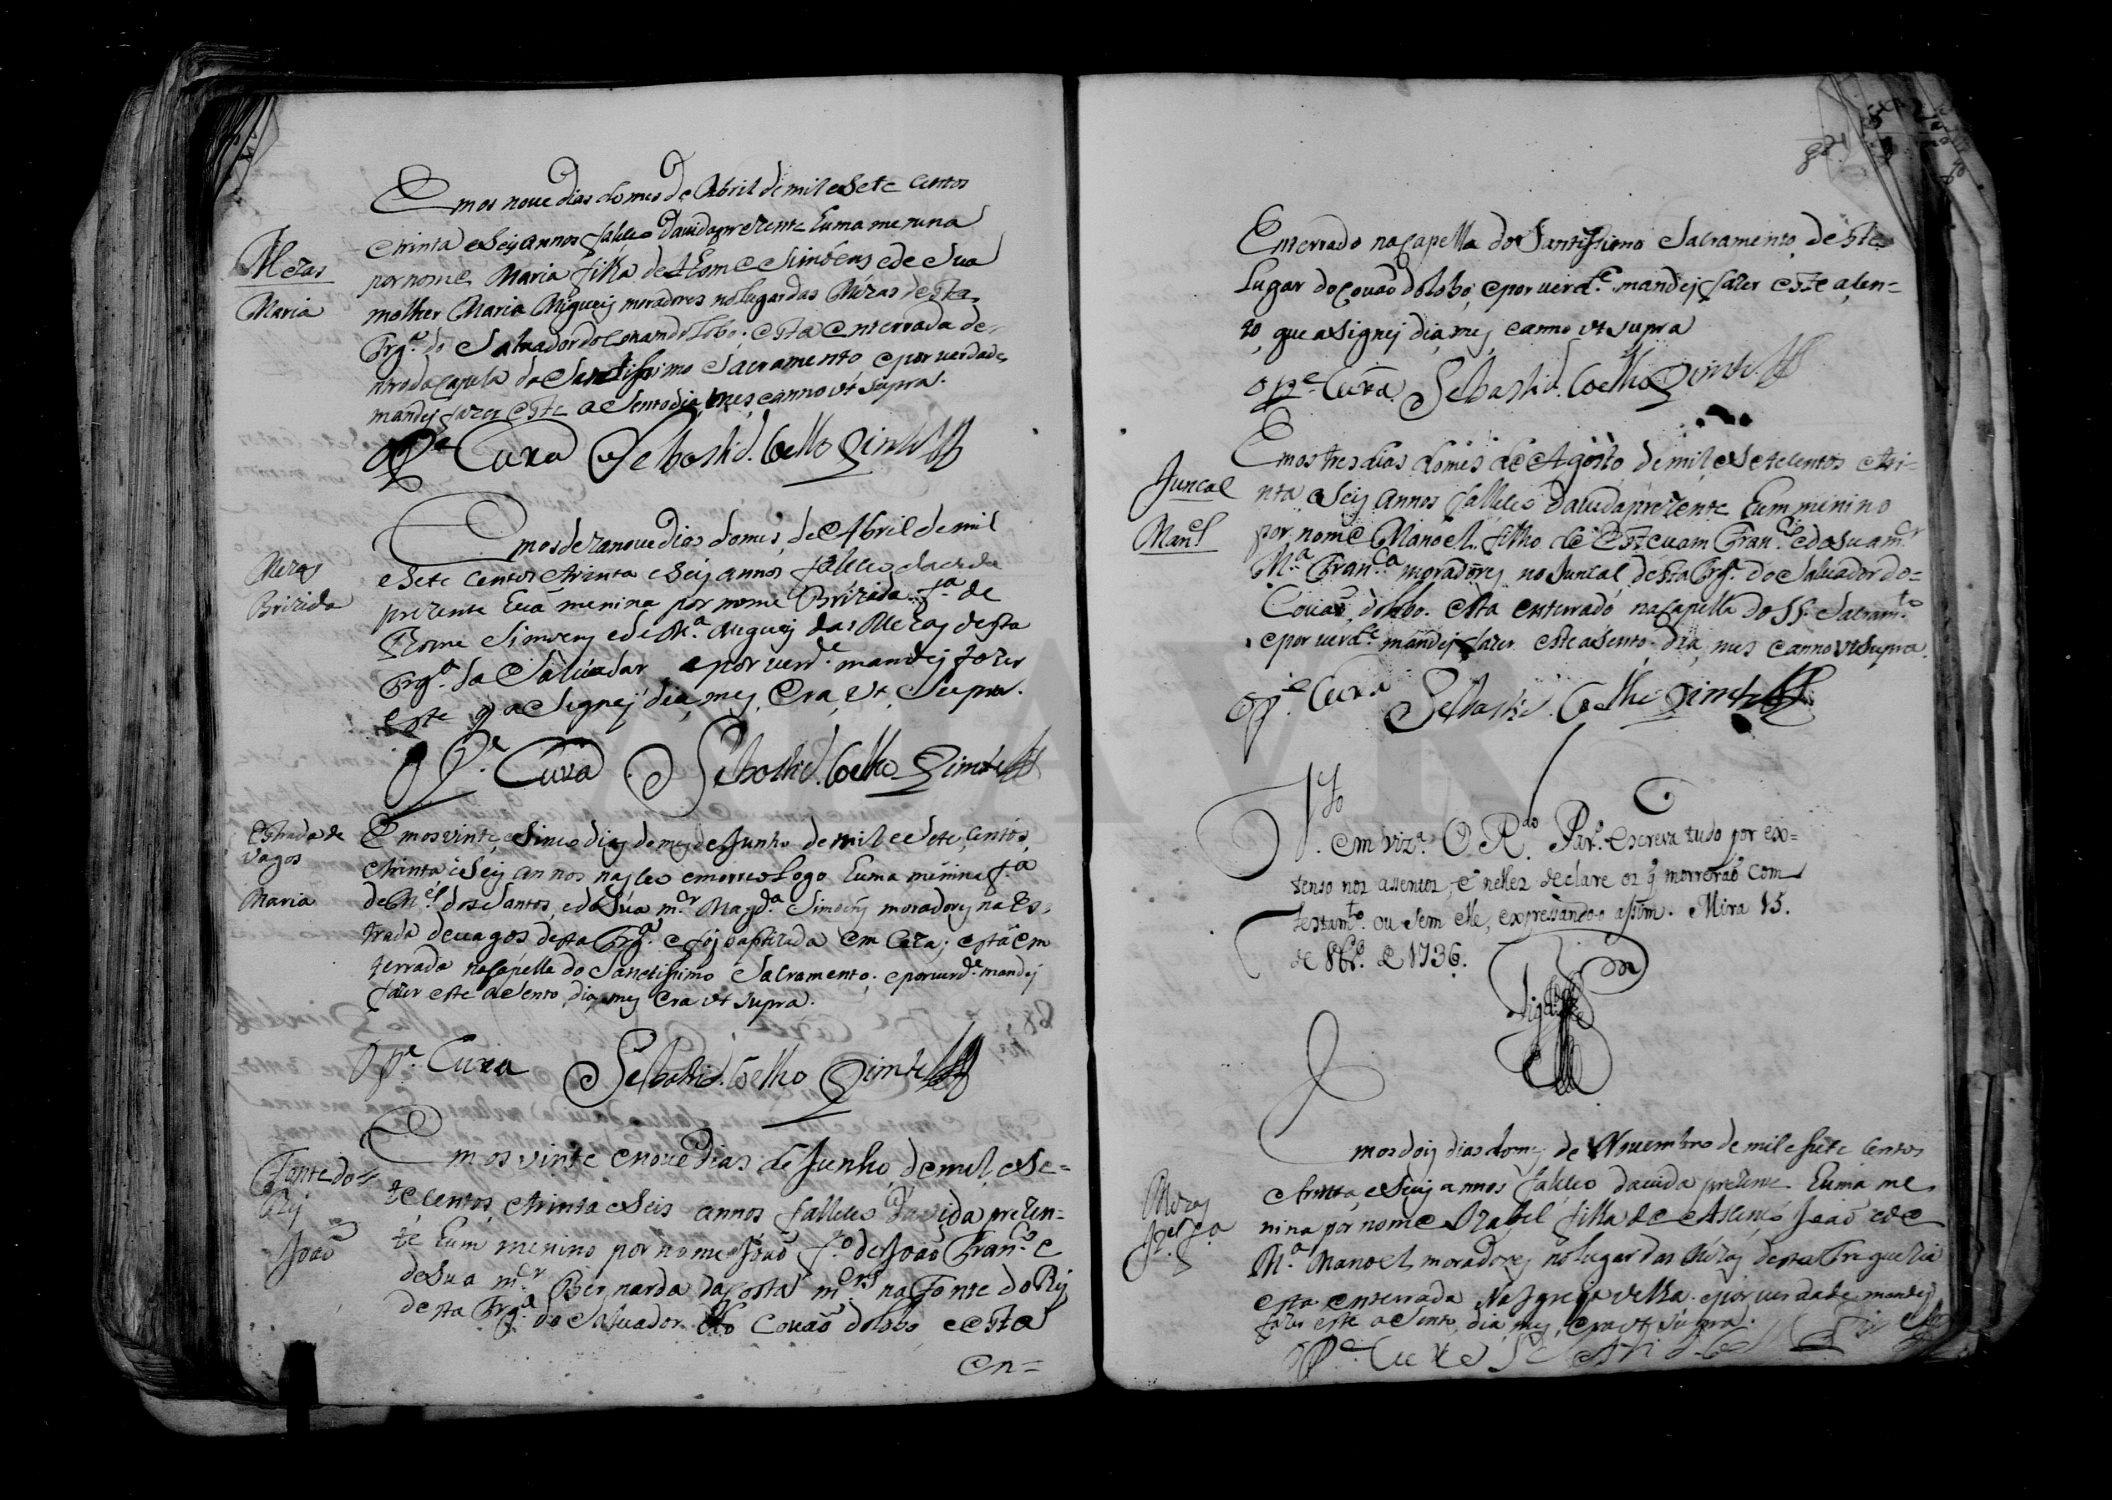 Em os noue dias do mes de Abril de mil e Sete Centos
e trinta e Seis annos faleceo da uida prezente huma menina
por nome Maria filha de Thome Simoens e de Sua
molher Maria Migueis moradores no lugar das Mezas desta
Frg.ª do Saluador do Couam do Lobo. esta enterrada de-
ntro da Capela do Santissimo Sacramento e por uerdade
mandej fazer este aSento dia, mes, e anno vt Supra.
O P.e Cura Sebastiã. Coelho Pimtel
Mezas
Maria
Em os dezanoue dias do mes, de Abril de mil
e Sete Centos e trinta e Seis annos faleceo da uida
prezente hũa menina por nome Brizida f.ª de
Thome Simoens e de M.ª Migueis das Mezas desta
Frg.ª do Saluador e por uerd.e mandej fazer
este q aSignej dia, mes, Era, vt, Supra.
O P.e Cura Sebastiã. Coelho Pimtel
Mezas
Brizida
Em os vinte, e Sinco dias do mes de Junho de mil e Sete, Centos,
e trinta e Seis annos nasceo e morreo Logo huma menina f.ª
de M.el dos Santos, e de Sua m.er Magd.ª Simoens moradores na Es-
trada de uagos desta Frg.ª e foj baptizada em Caza; está em
terrada na Capella do Sanctissimo Sacramento; e por uerd.e mandej
fazer este aSento, dia, mes Era vt supra.
O P.e Cura Sebastiã. Coelho Pimtel
Estrada de
Vagos
Maria
Em os vinte e noue dias de Junho, de mil, e Se-
te Centos, e trinta e Seis annos falleceo da uida prezen-
te hum menino por nome João f.º de João Fran.co e
de Sua m.er Bernarda da Costa m.res na Fonte do Rej
desta Frg.ª do Saluador do Couaõ do Lobo e esta
en-
Fonte do
Rej
João
82
Enterrado na Capella do Santissimo Sacramento deste
Lugar do Couaõ do Lobo, e por uerd.e mandej fazer este asen-
to, que aSignej dia, mes, e anno vt supra
O P.e Cura. Sebastiã. Coelho Pimtel
Em os tres dias do mes de Agosto de mil e Setecentos e tri-
nta e Seis annos falleceo da uida prezente hum menino
por nome Manoel filho de Esteuam Fran.co e de Sua m.er
M.ª Fran.ca moradores no Juncal desta Frg.ª do Saluador do-
Couaõ do Lobo. esta enterrado na Capella do SS. Sacram.to
e por uerd.e mandej fazer este aSento. dia, mes e anno vt Supra.
O P.e Cura Sebastiã. Coelho Pimtel
Juncal
Man.el
V.to
em viz.ª O R.do Par.º escreva tudo por ex-
tenso nos assentos, e nelles declare os q̃ morreraõ com
testam.to ou sem elle, expressando-o assim. Mira 15.
de 8br.º de 1736.
Em os dois dias do mes de Nouembro de mil e Sete Centos
e trinta, e Seis annos faleceo da uida prezente huma me-
nina por nome Izabel filha de Asenco João e de
M.ª Manoel moradores no lugar das Mezas desta Freguezia
esta enterrada Na Igreja velha e por uerdade mandej
fazer este aSento, dia, mes, era vt supra.
O P.e Cura Sebastiã. Coe
Mezas
Izel